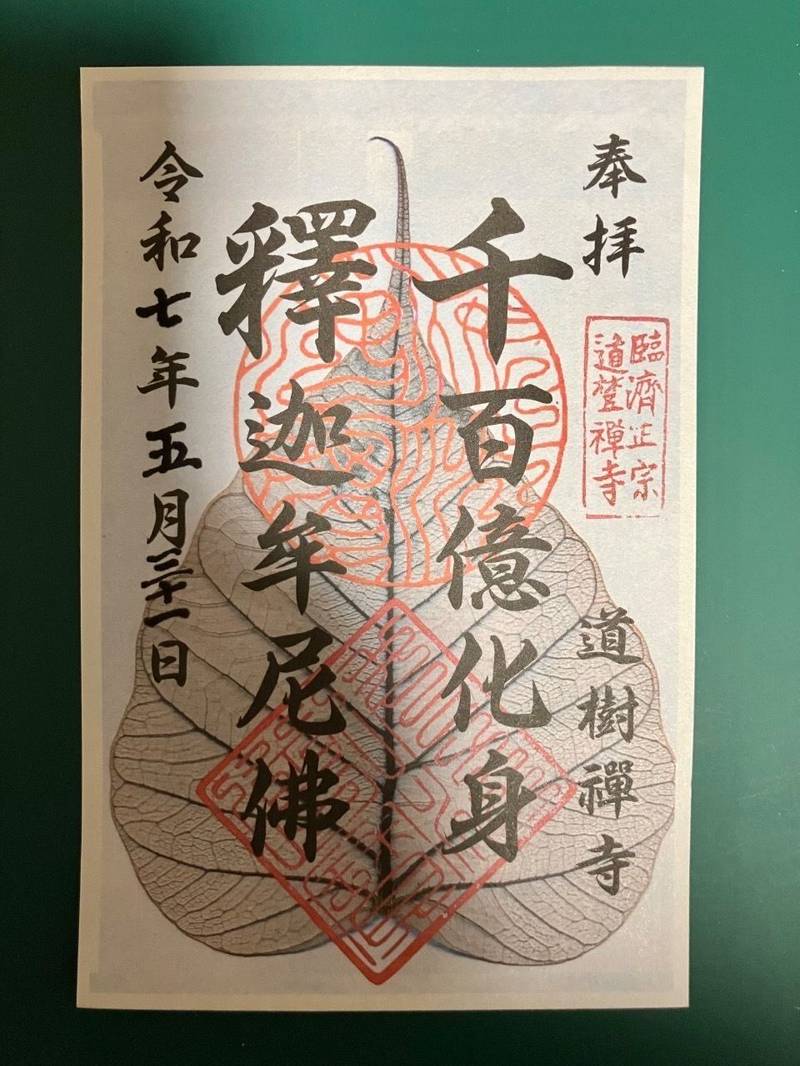 奉拜
臨濟正宗
道禪寺
道樹禪寺
千百億化身
釋迦牟尼佛
令和七年五月三十一日